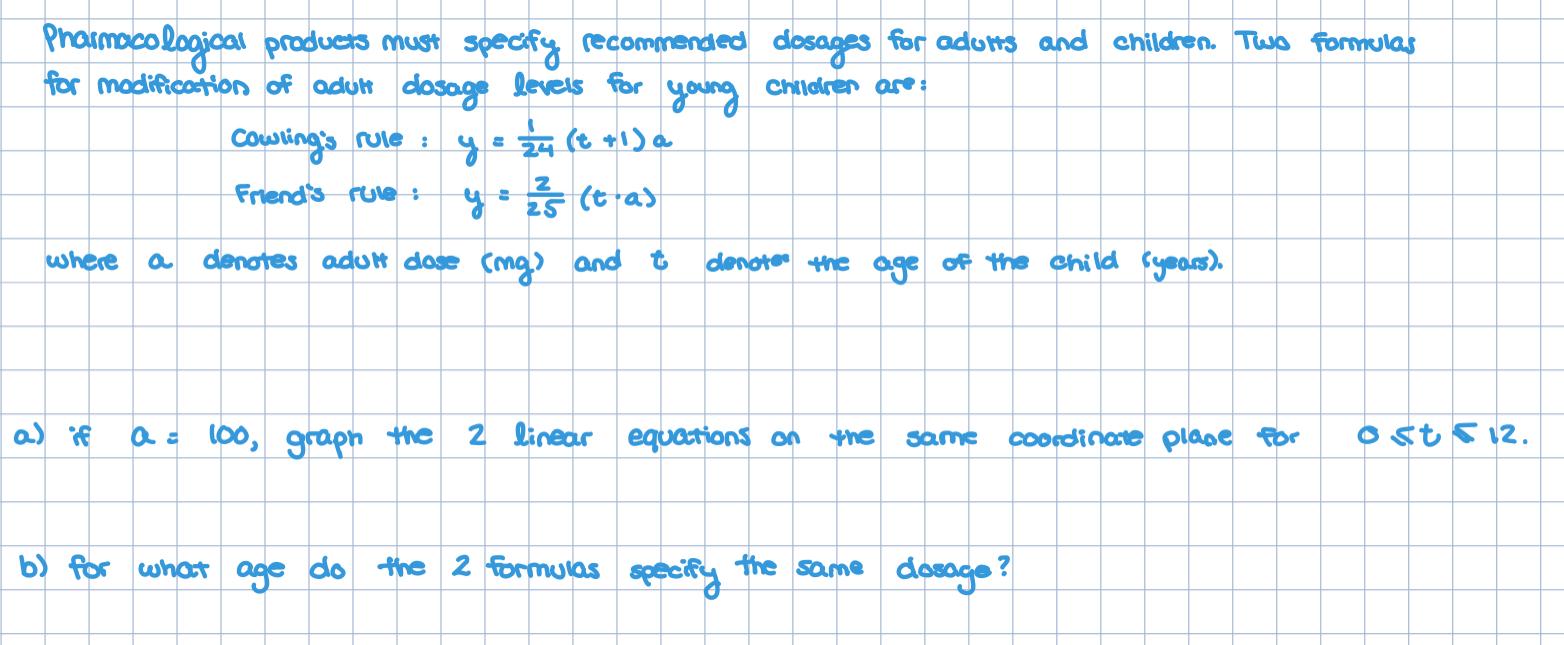 Pharmacological products must specify recommended dosages for adults and children. Two formulas
for modification of adult dosage levels for young children are:
Cowling's rule : y = 1/24 (t +1) a
Friend's rule : y = 2/25 (t · a)
where a denotes adult dose (mg) and t denotes the age of the child (years).
a) if a = 100, graph the 2 linear equations on the same coordinate plane for 0 ≤ t ≤ 12.
b) for what age do the 2 formulas specify the same dosage?